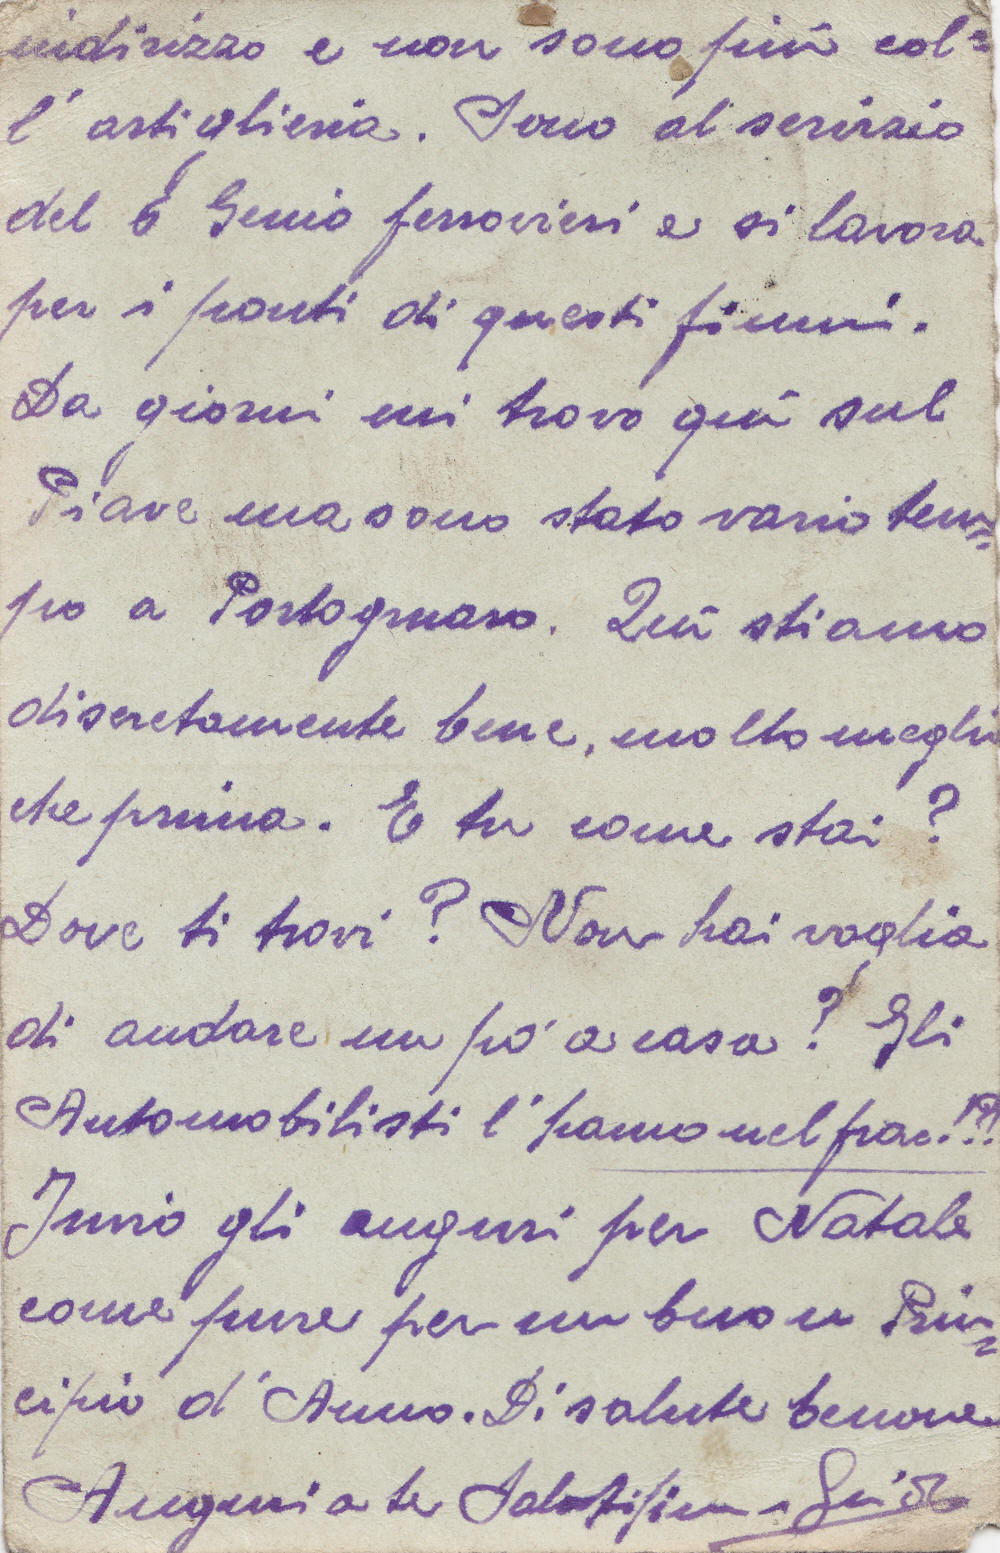 indirizzo e non sono più col=
l'artiglieria. Sono al servizio
del 6 Genio ferrovieri e si lavora
per i ponti di questi fiumi.
Da giorni mi trovo quì sul
Piave ma sono stato vario tem=
po a Portogruaro. Quì stiamo
discretamente bene, molto meglio
che prima. E tu come stai?
Dove ti trovi? Non hai voglia
di andare un pò a casa? Gli
Automobilisti l'hanno nel frac!??
Invio gli auguri per Natale
come pure per un buon Prin=
cipio d'Anno. Di salute benone
Auguri a te Salutissimi Guido